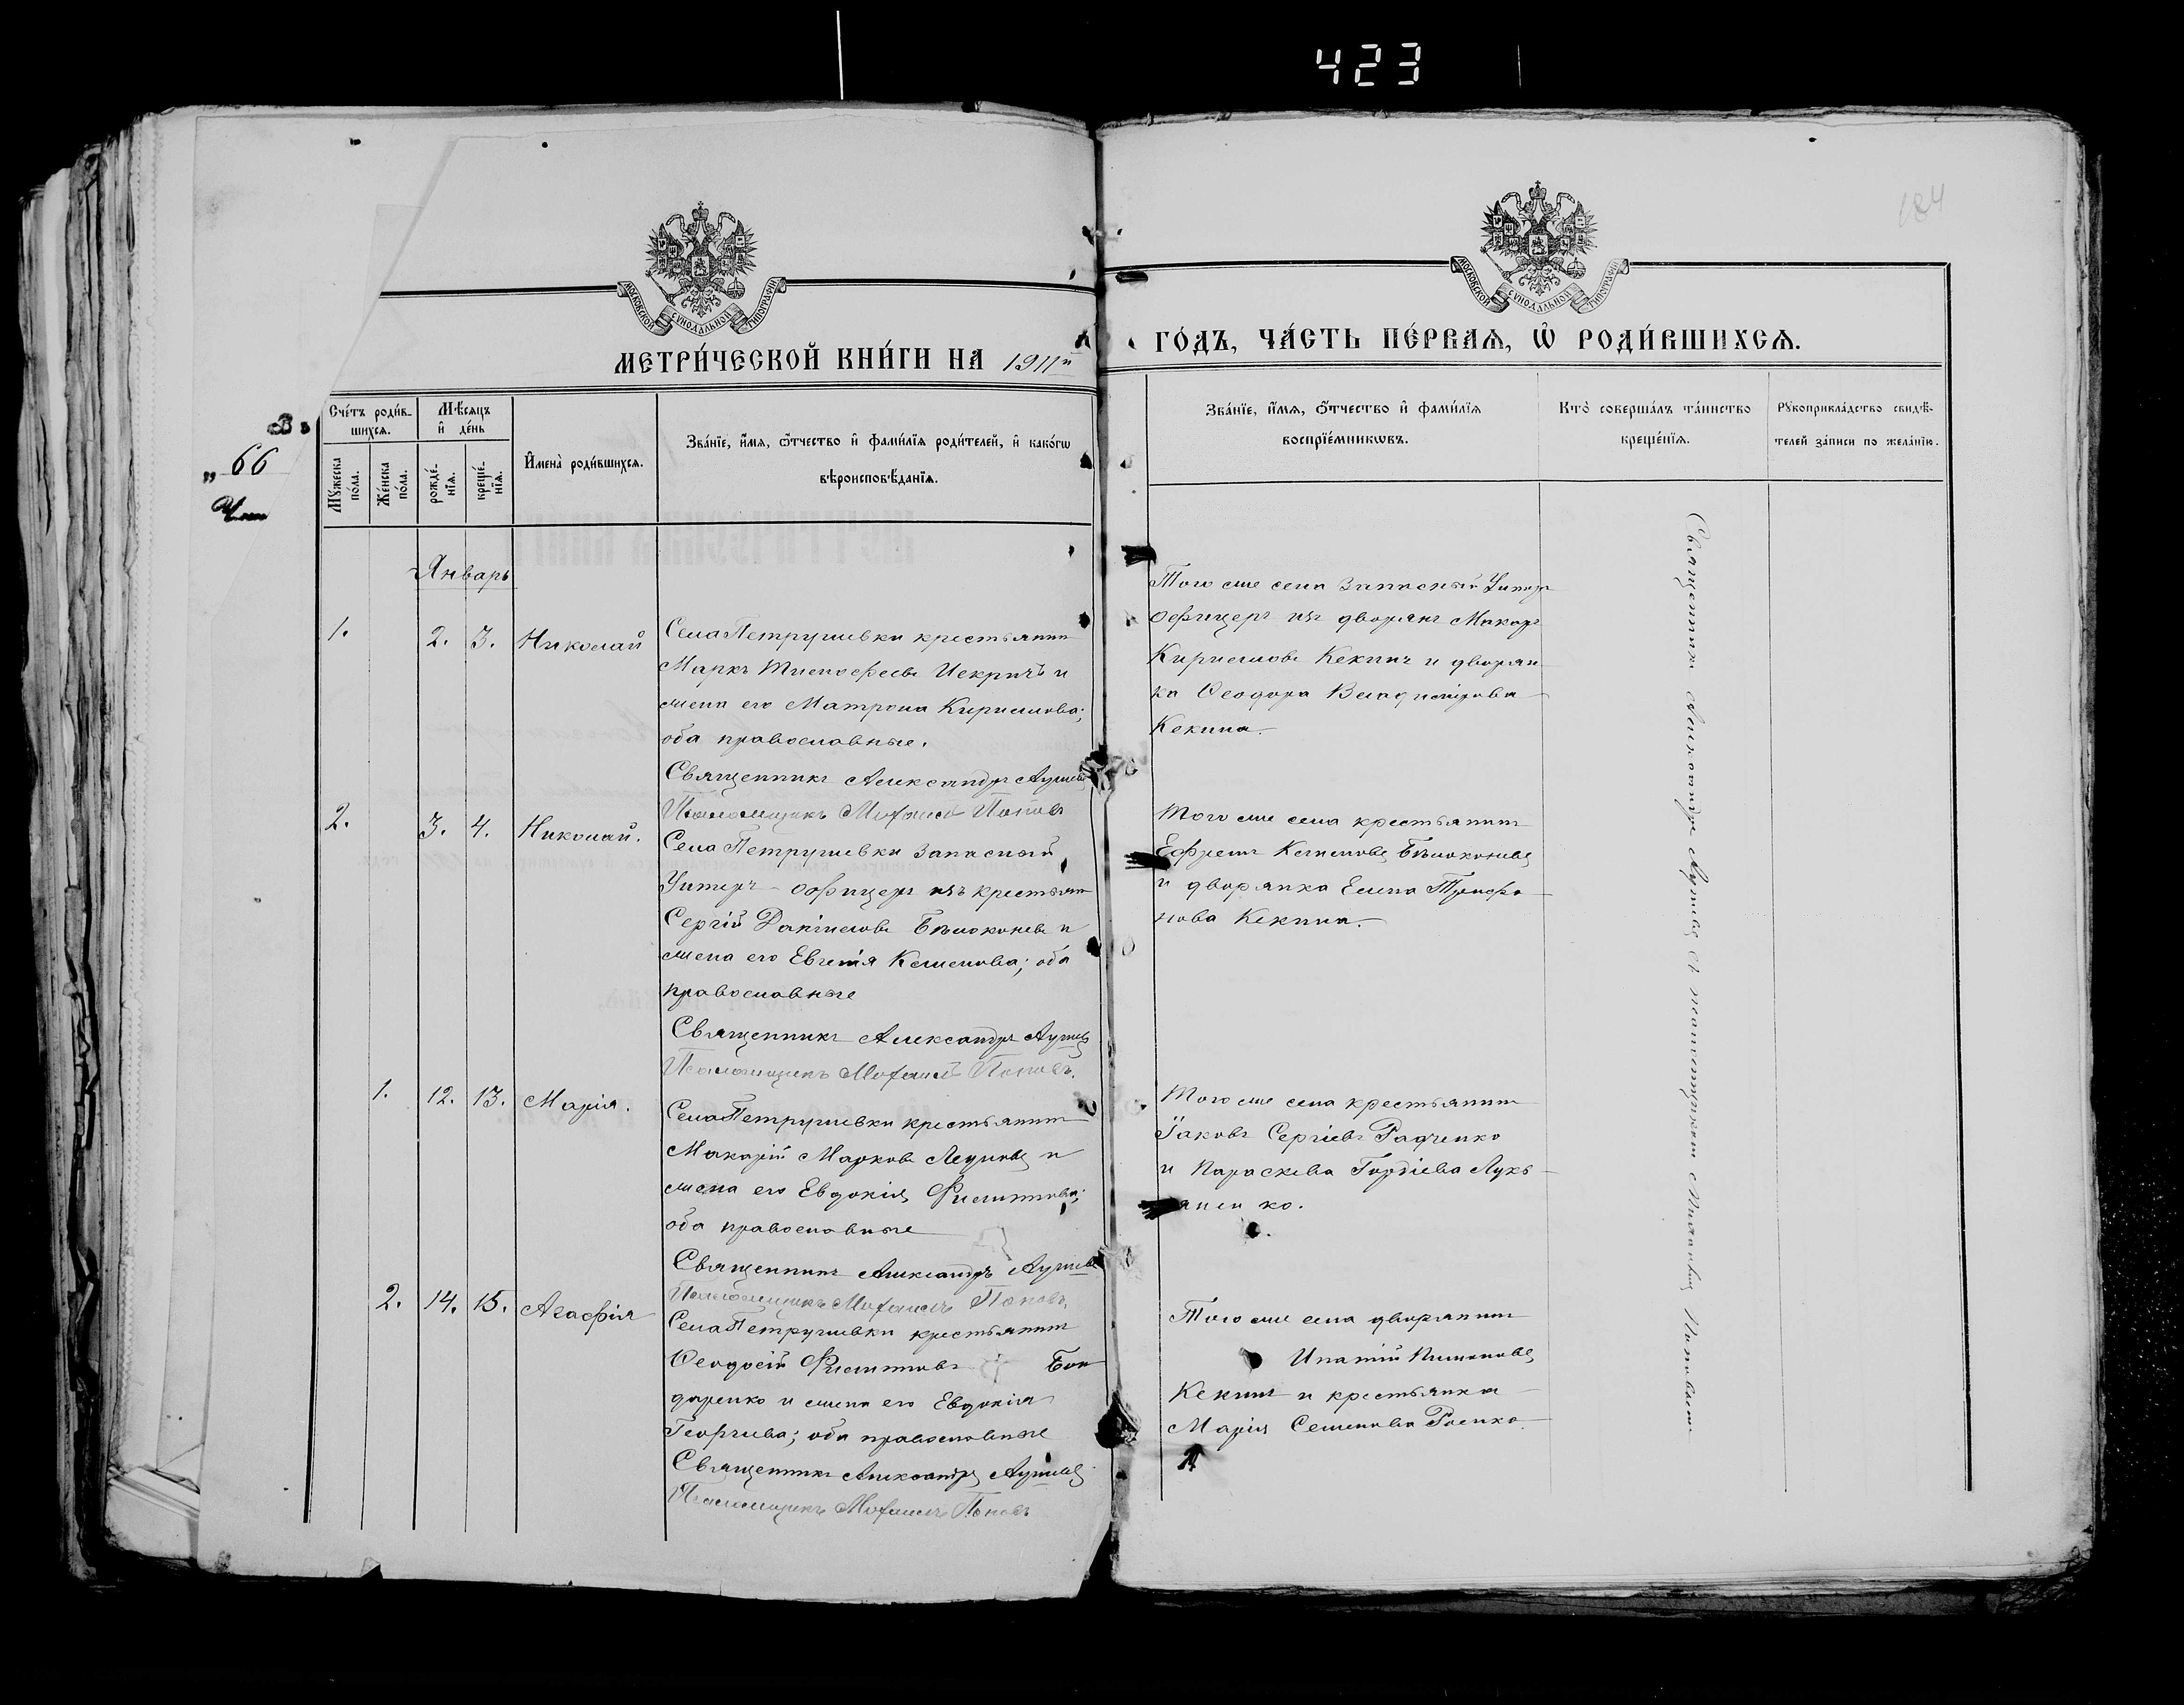 423
184
МОСКОВСКОЙ СѴНОДАЛЬНОЙ ТИПОГРАФІИ
МОСКОВСКОЙ СѴНОДАЛЬНОЙ ТИПОГРАФІИ
МЕТРИ́ЧЕСКОЙ КНИ́ГИ НА 1911й
ГО́ДЪ, ЧА́СТЬ ПЕ́РВАѦ, Ѡ҆ РОДИ́ВШИХСѦ.
Въ
„ 66
Счéтъ роди́в-
шихсѧ.
Мꙋ́жеска
по́ла.
Жéнска
по́ла.
Мѣ́сѧцъ
и҆ дéнь
рождé-
нїѧ.
крещé-
нїѧ.
И҆мена̀ роди́вшихсѧ.
Зва́нїе, и҆́мѧ, ѻ҆́тчество и҆ фами́лїѧ роди́телей, и҆ како́гѡ
вѣроисповѣ́данїѧ.
Зва́нїе, и҆́мѧ, ѻ҆́тчество и҆ фами́лїѧ
воспрїéмникѡвъ.
Кто̀ соверша́лъ та́инство
крещéнїѧ.
Рꙋкоприкла́дство свидѣ́-
телей за́писи по жела́нїю.
Январь
1. 2. 3. Николай
Села Петрушевки крестьянинъ
Маркъ Тимофеевъ Искричъ и
жена его Матрона Кириллова;
оба православные.
Священникъ Александръ
Псаломщикъ Михаилъ Поповъ
Того же села Запасный Унтеръ
Офицеръ изъ дворянъ Макаръ
Кирилловъ Кекинъ и дворян
ка Ѳеодора Владимірова
Кекина.
2. 3. 4. Николай.
Села Петрушевки запасный
Унтеръ-офицеръ изъ крестьянъ
Сергій Даніиловъ Бѣлоконевъ и
жена его Евгенія Климова; оба
православные
Священникъ Александръ
Псаломщикъ Михаилъ Поповъ.
Того же села крестьянинъ
Ефремъ Бѣлоконевъ
и дворянка Елена Трифо
нова Кекина.
1. 12. 13. Марія.
Села Петрушевки крестьянинъ
Макарій Марковъ и
жена его Евдокія Филиппова;
оба православные
Священникъ Александръ
Псаломщикъ Михаилъ Поповъ.
Того же села крестьянинъ
Іаковъ Сергіевъ Радченко
и Параскева Гордіева Лукь
янен ко.
2. 14. 15. Агафія
Села Петрушевки крестьянинъ
Ѳеодосій Филипповъ Бон
даренко и жена его Евдокія
Георгіева; оба православные
Священникъ Александръ
Псаломщикъ Михаилъ Поповъ
Того же села дворянинъ
Ипатій Пименовъ
Кекинъ и крестьянка
Марія Семенова Роенко
Священникъ Александръ съ псаломщикомъ Михаиломъ Поповымъ